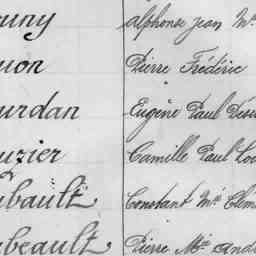 ouny Alphonse Jean M.
uon Pierre Frédéric
urdan Eugène Paul Dési
uzier Camille Paul Lou
ubault Constant M.ie Clém
ubeault Pierre M.ie And